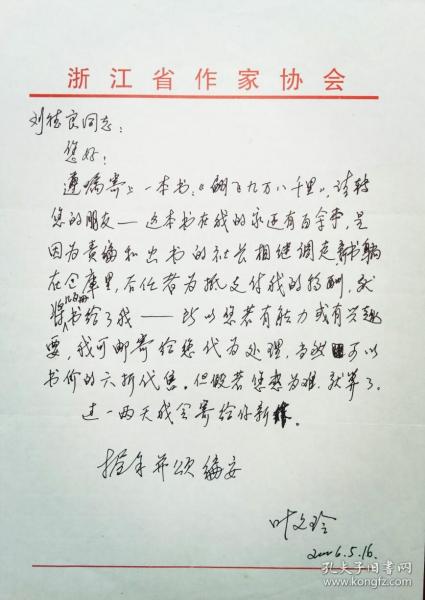 浙江省作家协会
刘德良同志：
您好！
遵嘱寄上一本书：《翻飞九万八千里》，请转
您的朋友——这本书在我的家还有百余本，是
因为责编和出书的社长相继调走，新书躺
在仓库里，后任者为抵支付我的稿酬，就
将书给了我——所以您若有能力或有兴趣
要，我可邮寄给您代为处理，当然可以
书价的六折代售。但倘若您感为难，就算了。
这一两天我会寄给你新作。
握手并颂编安
叶文玲
2006.5.16.
孔夫子旧书网
www.kongfz.com